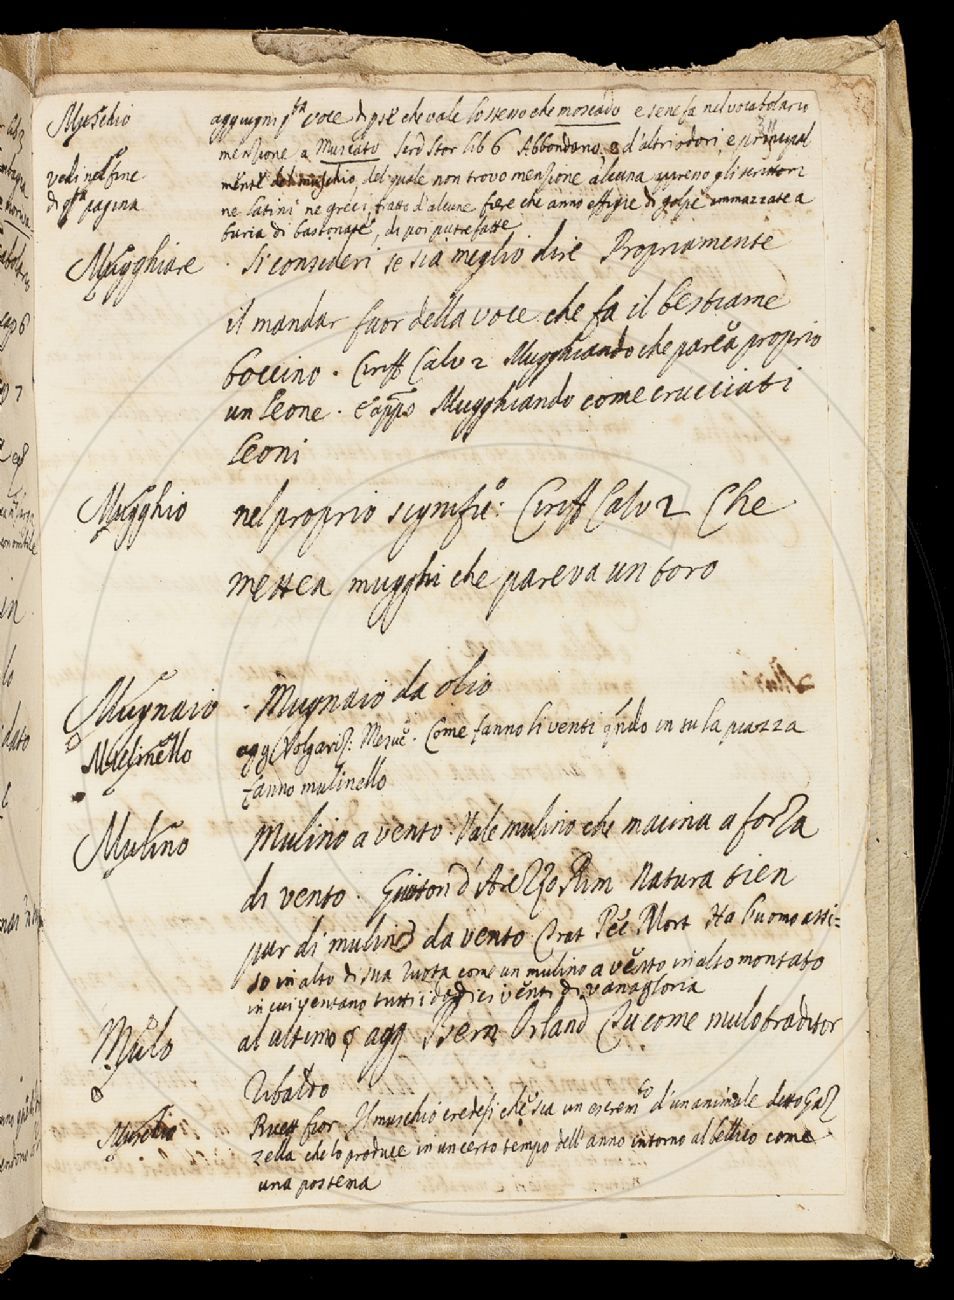 Muschio aggiugni q.ta voce di p se che vale lo stesso che moscado e sene fa nel vocabolario
menzione a Muscato Serd Stor lib 6 Abbondano, e d'altri odori, e principal
vedi nel fine mente del muschio, del quale non trovo menzione alcuna appreno gli scrittori
di q.ta pagina ne latini ne greci, fatto d'alcune fiere che anno effigie di golpe ammazzate a
furia di bastonate, di poi putrefatte
Mugghiare . Si consideri se sia meglio dire Propriamente
il mandar fuor della voce che fa il bestiame
boccino . Ciriff Calv 2 Mugghiando che parea proprio
un leone . e appo Mugghiando come crucciati
leoni
Mugghio nel proprio signific: Ciriff Calv 2 Che
mettea mugghi che pareva un toro
Mugnaio . Mugnaio da olio
Mulinello agg Volgariz: Mesue . Come fanno li venti qndo in su la piazza
fanno mulinello
Mulino Mulino a vento . Vale mulino che macina a forza
di vento . Guitton d'Arezzo Rim Natura tien
par di mulino da vento Trat Pec Mort Ha l'uomo assi=
so in alto di sua ruota come un mulino a vento in alto montato
in cui ventano tutti i dodici venti di vanagloria
Mulo al ultimo § agg Bern Orland Tu come mulo traditor
Ribaldo
Muschio Ricett fior . Il muschio credesi che sia un escrem.to d'un animale detto Gaz
zella che lo produce in un certo tempo dell'anno intorno al bellico come
una postema